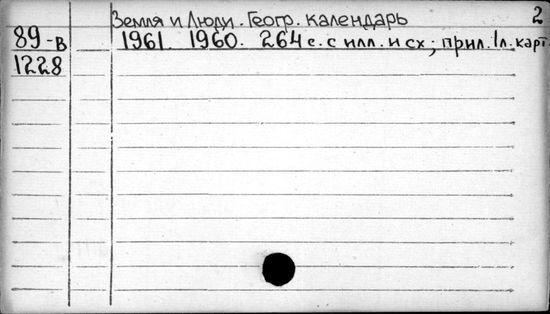 Земля и Люди. Геогр. календарь 2
89-в 1961. 1960. 264 с. с илл. и сх; прил. 1 л. карт
1228